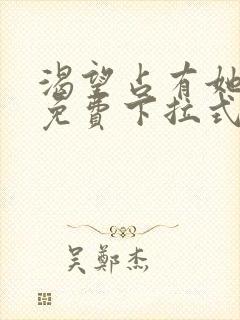 渴望占有她
免費下拉式
吴鄭杰